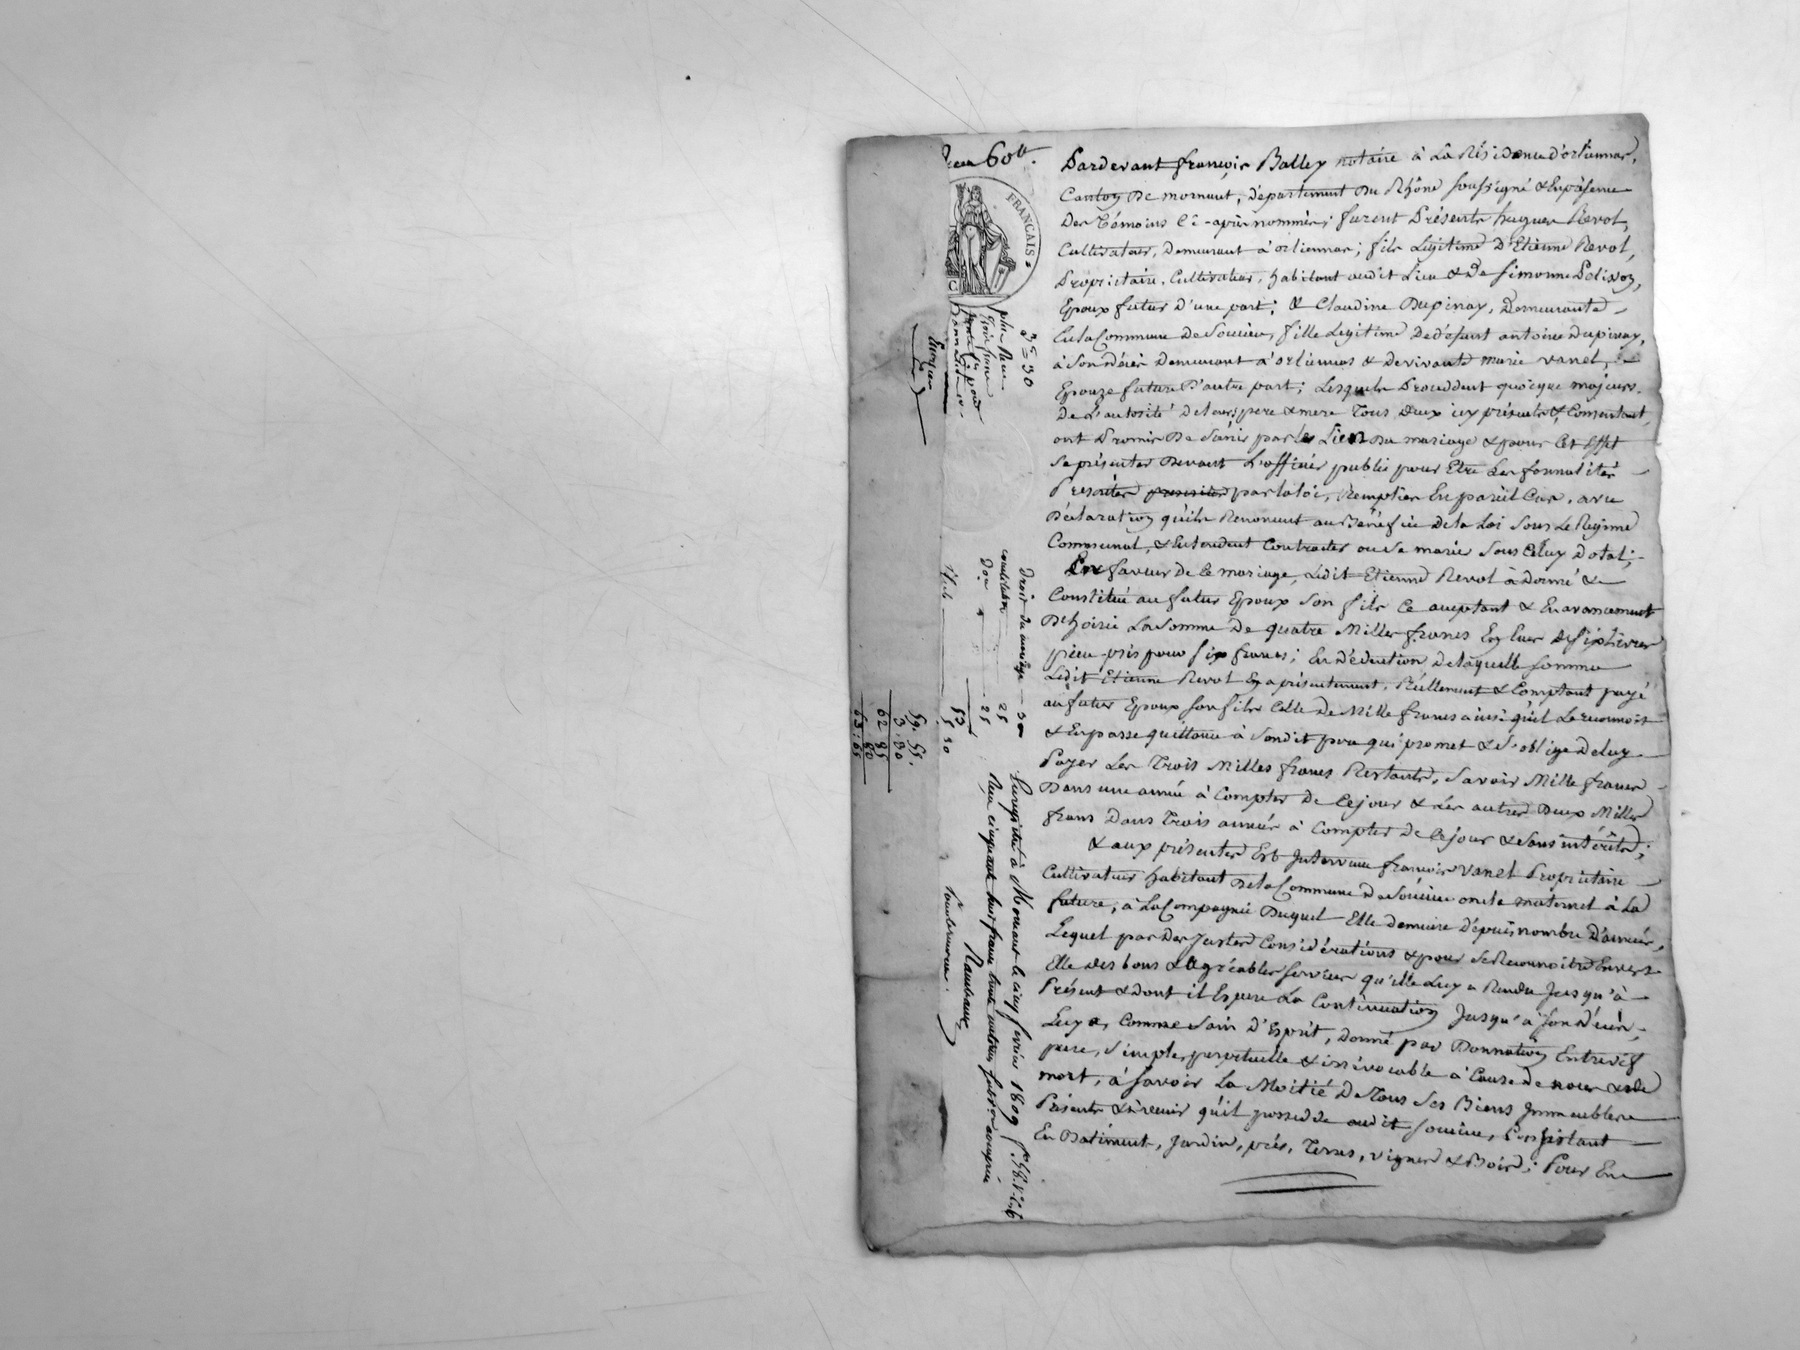 60
FRANÇAIS
Pardevant françois Balley notaire à La Résidence d'orliennas,
Canton De mornant, département Du Rhône soussigné & En présence
Des Témoins Cï-après nommés; furent Présents hugues Revol,
Cultivateur, Demeurant à orliennas; fils Légitime D'Etienne Revol,
Propriétaire, Cultivateur, habitant audit Lieu & De Simonne
Epoux futur d'une part; & Claudine Dupinay, Demeurante
En la Commune De Soucieu, fille Légitime De défunt antoine Dupinay,
à Son décès Demeurant à orliennas & de vivante marie vanel,
Epouze future D'autre part; Lesquels Procédant quoique majeurs
De L'autorité De leurs pere & mere Tous Deux icy présents & Consentant
ont Promis De S'unir par les Lien Du mariage & pour Cet Effet
Se présenter Devant L'officier public pour Etre Les formalités
Prescrites prescrites par la loi, Remplies En pareil Cas, avec
Déclaration qu'ils Renoncent au Bénéfice De la Loi Sous Le Régime
Communal, & Entendent Contracter ou Se marier Sous Celuy Dotal;
En faveur de Ce mariage, Ledit Etienne Revol à donné &
Constitué au futur Epoux Son fils Ce acceptant & En avancement
D'hoirie La Somme De quatre Milles francs En Ecus de Six Livres
piece pris pour Six francs; En Déduction De laquelle Somme
Ledit Etienne Revol a présentement, Réellement & Comptant payé
au futur Epoux Son fils Celle De Mille francs ainsi qu'il Le reconnoit
& En passe quittance à Sondit pere qui promet & S'oblige De luy
Payer Les Trois Milles francs Restants, Savoir Mille francs
Dans une année à Compter De Ce jour & Les autres Deux Milles
francs Dans Trois années à Compter De Ce jour & Sans intérêts;
& aux présentes Est Intervenu françois vanel Propriétaire
Cultivateur habitant De la Commune De Soucieu oncle maternel à La
future, à La Compagnie Duquel Elle demeure Depuis nombre D'années,
Lequel par Des Justes Considérations & pour Se Reconnoitre Envers
Elle Des bons & agréables Services qu'elle Luy a Rendu Jusqu'à
Présent & dont il Espere La Continuation Jusqu'à Son Décès,
Luy a, Comme Sain D'Esprit, Donné par Donnation Entrevif
pure, Simple, perpétuelle & irrévocable à Cause de noces & de
mort, à Savoir La Moitié De Tous Ses Biens Immeubles
Présents & à venir qu'il possede audit Soucieu, Consistant
En Batiment, Jardin, prés, Terres, vignes & Bois; Pour En
3 30
plus Reçu
trois francs
trente
Droit du mariage 30
constitution 25
Don 25
53
5 30
59. 55.
3. 30
62 85
80
63 : 65
Enregistré à Mornant le cinq février 1809
Reçu cinquante huit francs trente centimes subvention comprise